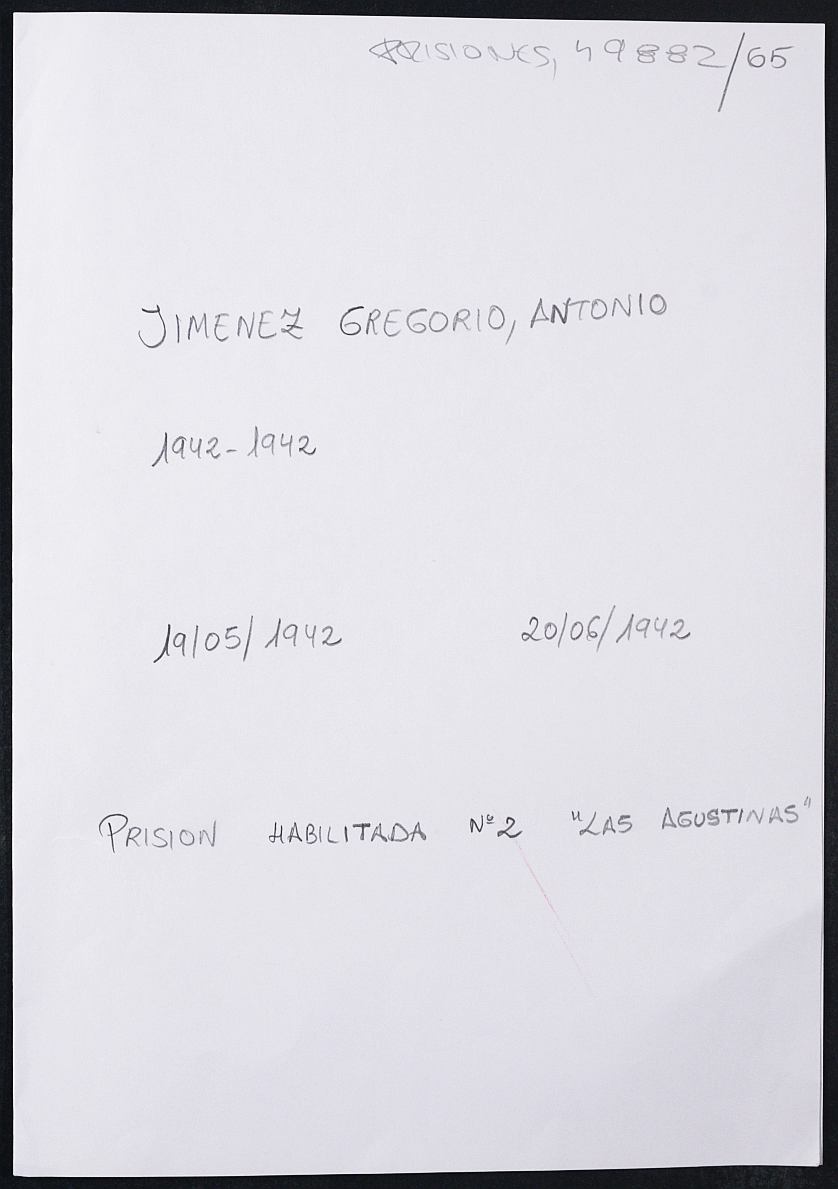 PRISIONES, 49882/65
JIMENEZ GREGORIO, ANTONIO
1942-1942
19/05/1942 20/06/1942
PRISION HABILITADA Nº2 "LAS AGUSTINAS"